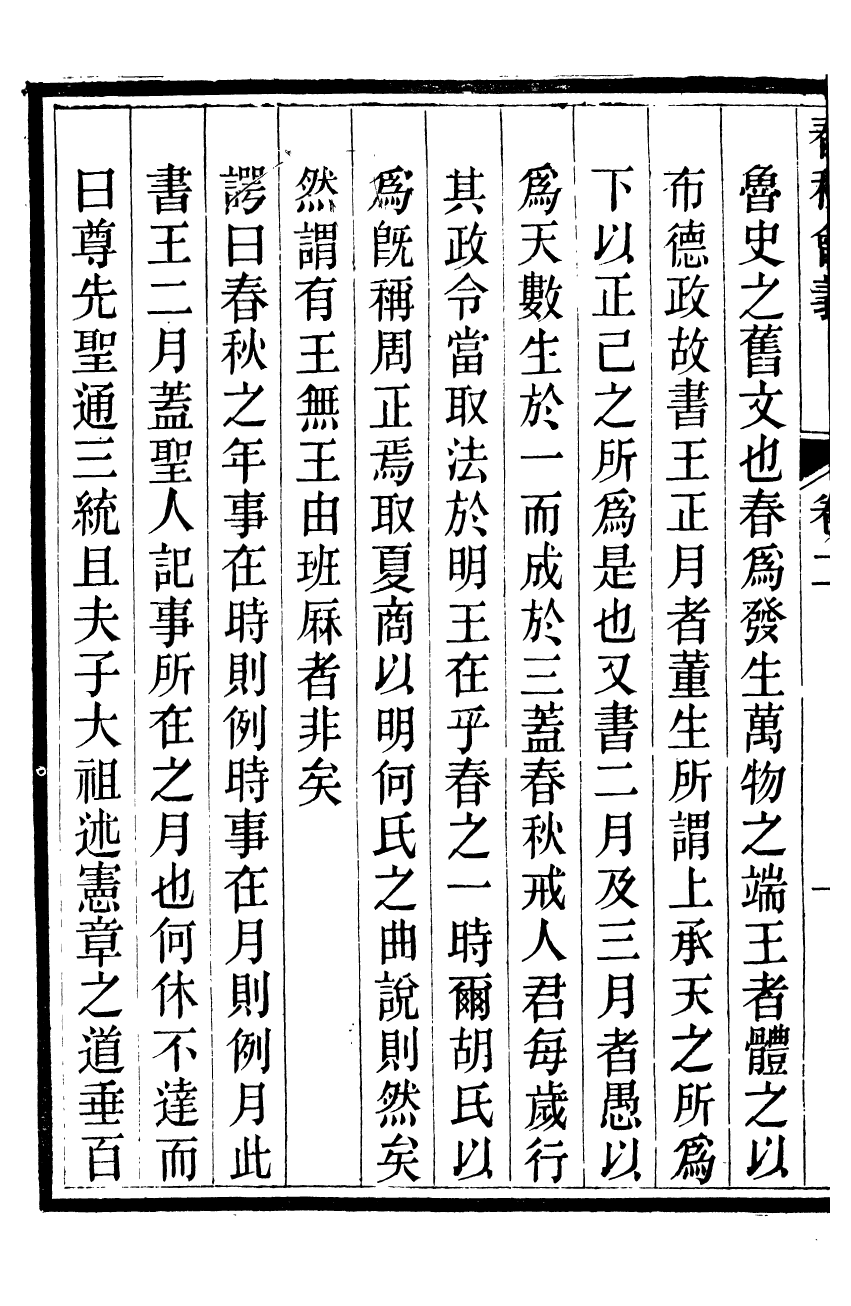 春秋會義 卷二 一
魯史之舊文也春爲發生萬物之端王者體之以
布德政故書王正月者董生所謂上承天之所爲
下以正己之所爲是也又書二月及三月者愚以
爲天數生於一而成於三蓋春秋戒人君每歲行
其政令當取法於明王在乎春之一時爾胡氏以
爲旣稱周正焉取夏商以明何氏之曲說則然矣
然謂有王無王由班厤者非矣
諤曰春秋之年事在時則例時事在月則例月此
書王二月蓋聖人記事所在之月也何休不達而
曰尊先聖通三統且夫子大祖述憲章之道垂百